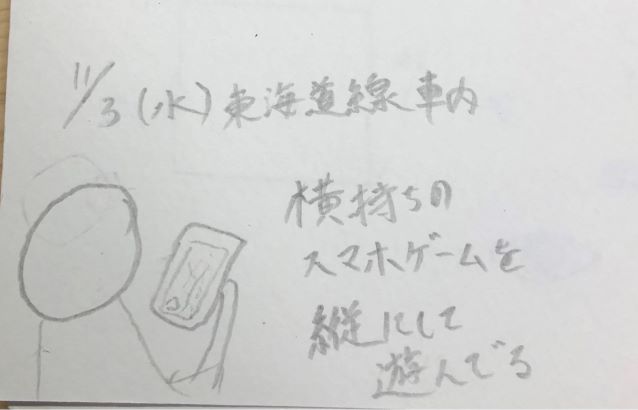 11/3(水)東海道線車内
横持ちの
スマホゲームを
縦にして
遊んでる